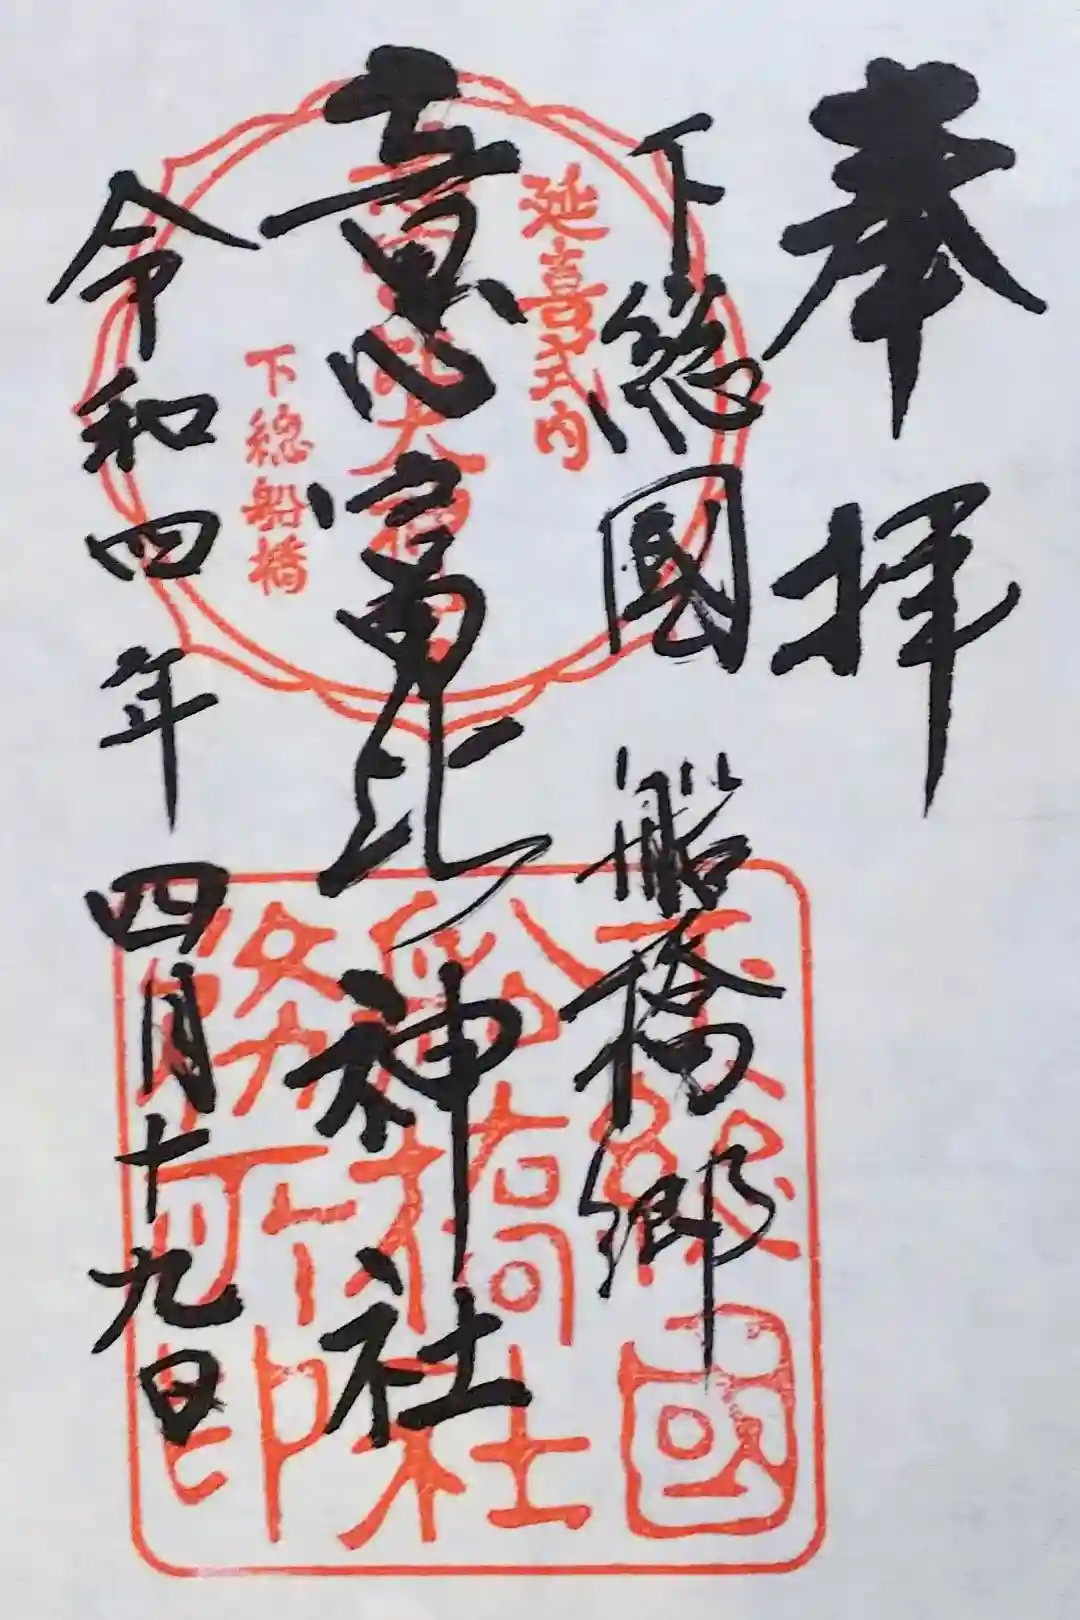 奉拝
下総國 船橋郷
意富比神社
令和四年四月十九日
延喜式内
下総船橋